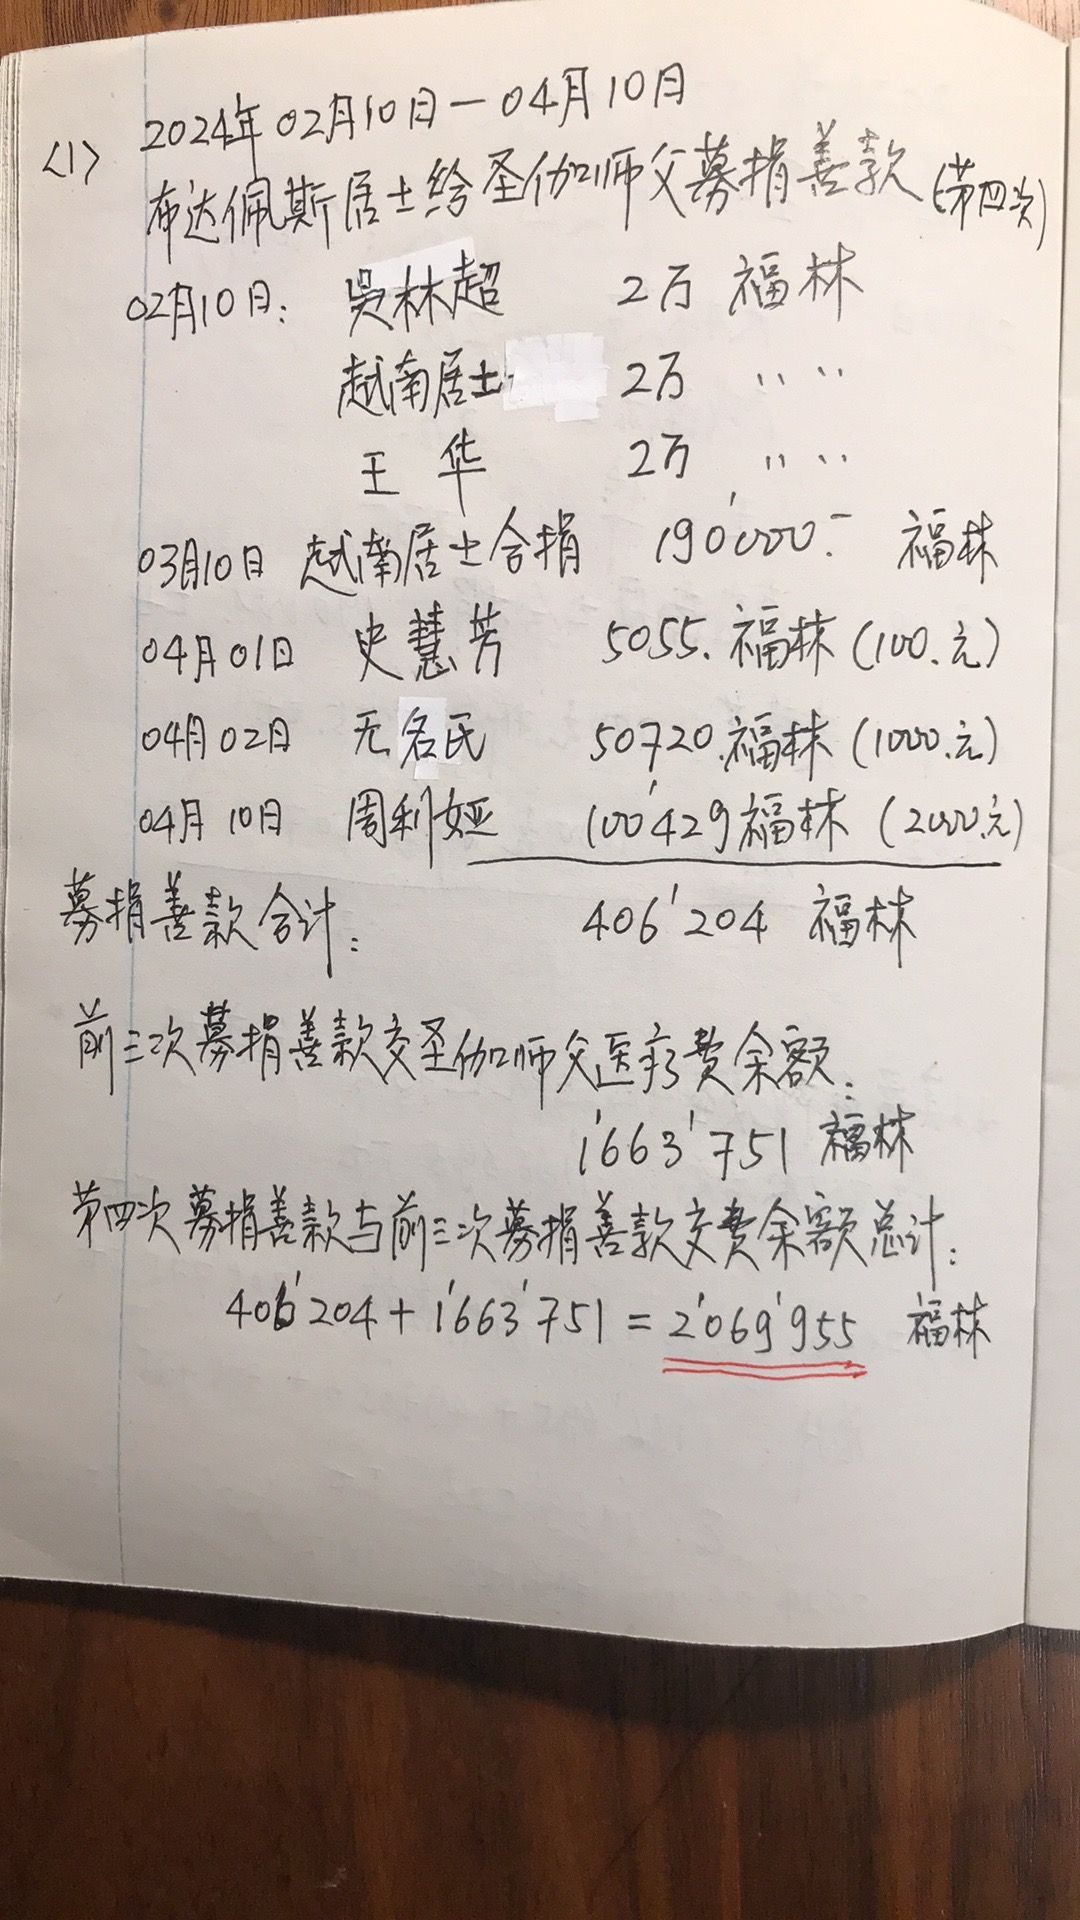 <1> 2024年02月10日—04月10日
布达佩斯居士给圣伽师父募捐善款(第四次)
02月10日: 吴林超 2万 福林
越南居士 2万 〃 〃
王 华 2万 〃 〃
03月10日 越南居士合捐 190'000.- 福林
04月01日 史慧芳 5055.福林(100.元)
04月02日 无名氏 50720.福林(1000.元)
04月10日 周利娅 100'429福林(2000.元)
募捐善款合计: 406'204 福林
前三次募捐善款交圣伽师父医疗费余额:
1'663'751 福林
第四次募捐善款与前三次募捐善款交费余额总计:
406'204+1'663'751=2'069'955 福林